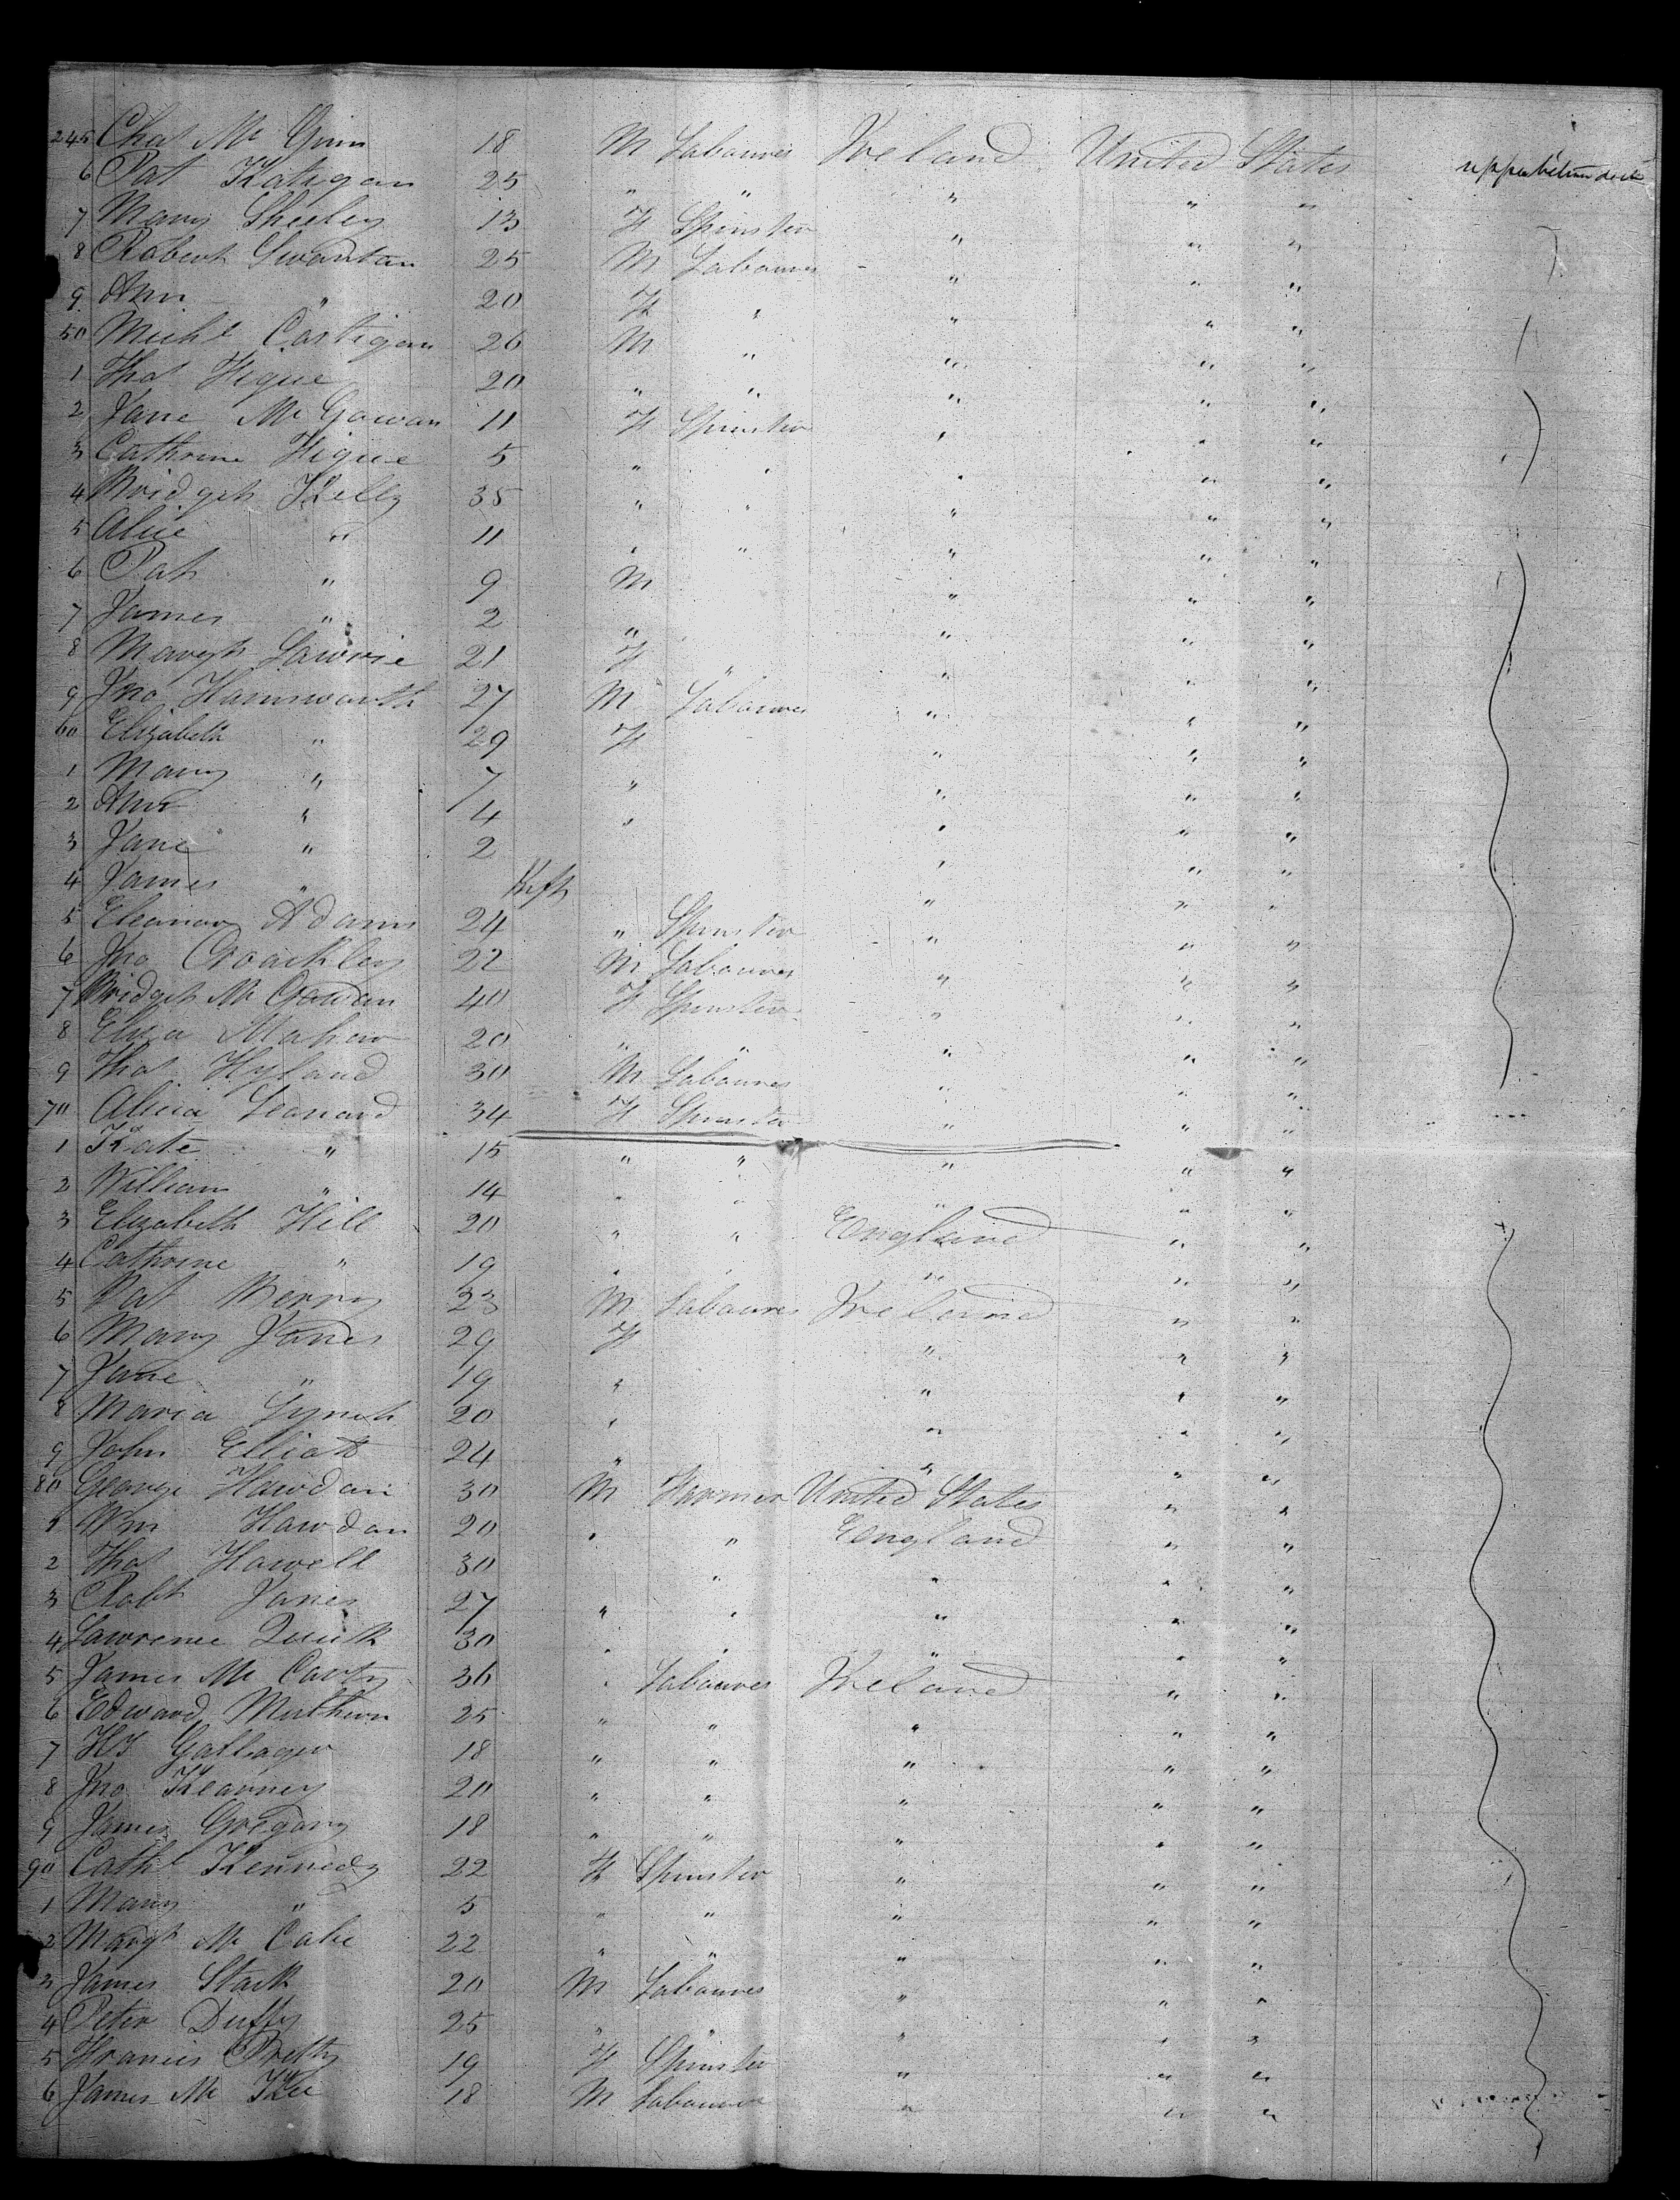 245 Chas Mc Ginn 18 M Labourer Ireland United States upper between decks
6 Pat Hatigan 25 " " " " "
7 Mary Sheeley 13 F Spinster " " "
8 Robert Swanton 25 M Labourer " " "
9 Ann " 20 F " " " "
50 Michl Costigan 26 M " " " "
1 Thos Higue 20 " " " " "
2 Jane Mc Gowan 11 F Spinster " " "
3 Cathrine Higue 5 " " " " "
4 Bridget Kelly 35 " " " " "
5 Alice " 11 " " " " "
6 Pat " 9 M " " "
7 James " 2 " " " "
8 Margt Lawrie 21 F " " " "
9 Jno Hainsworth 27 M Labourer " " "
60 Elizabeth " 29 F " " "
1 Mary " 7 " " " "
2 Ann " 4 " " " "
3 Jane " 2 " " "
4 James " Inft " " "
5 Eleanor Adams 24 " Spinster " " "
6 Jno Croackley 22 M Labourer " " "
7 Bridget Mc Gowan 40 F Spinster " " "
8 Eliza Mahon 20 " " " " "
9 Thos Hyland 30 M Labourer " " "
70 Alicia Leonard 34 F Spinster " " "
1 Kate " 15 " " " " "
2 William " 14 " " " " "
3 Elizabeth Hill 20 " " England " "
4 Cathrine " 19 " " " " "
5 Pat Berry 23 M Labourer Ireland " "
6 Mary Jones 29 F " " "
7 Jane " 19 " " " "
8 Maria Lynch 20 " " " "
9 John Elliott 24 " " " "
80 George Hawdan 30 M Farmer United States " "
1 Wm Hawdan 20 " " England " "
2 Thos Howell 30 " " " "
3 Robt Jones 27 " " " " "
4 Lawrence Quirk 30 " " " " "
5 James Mc Carty 36 " Labourer Ireland " "
6 Edward Mulhern 25 " " " " "
7 Gallager 18 " " " " "
8 Jno Kearney 20 " " " " "
9 James Gregory 18 " " " " "
90 Cathe Kennedy 22 F Spinster " " "
1 Mary " 5 " " " " "
2 Margt Mc Cabe 22 " " " " "
3 James Stack 20 M Labourer " " "
4 Peter Duffy 25 " " " " "
5 Francis Pretty 19 F Spinster " " "
6 James Mc Kee 18 M Labourer " " "